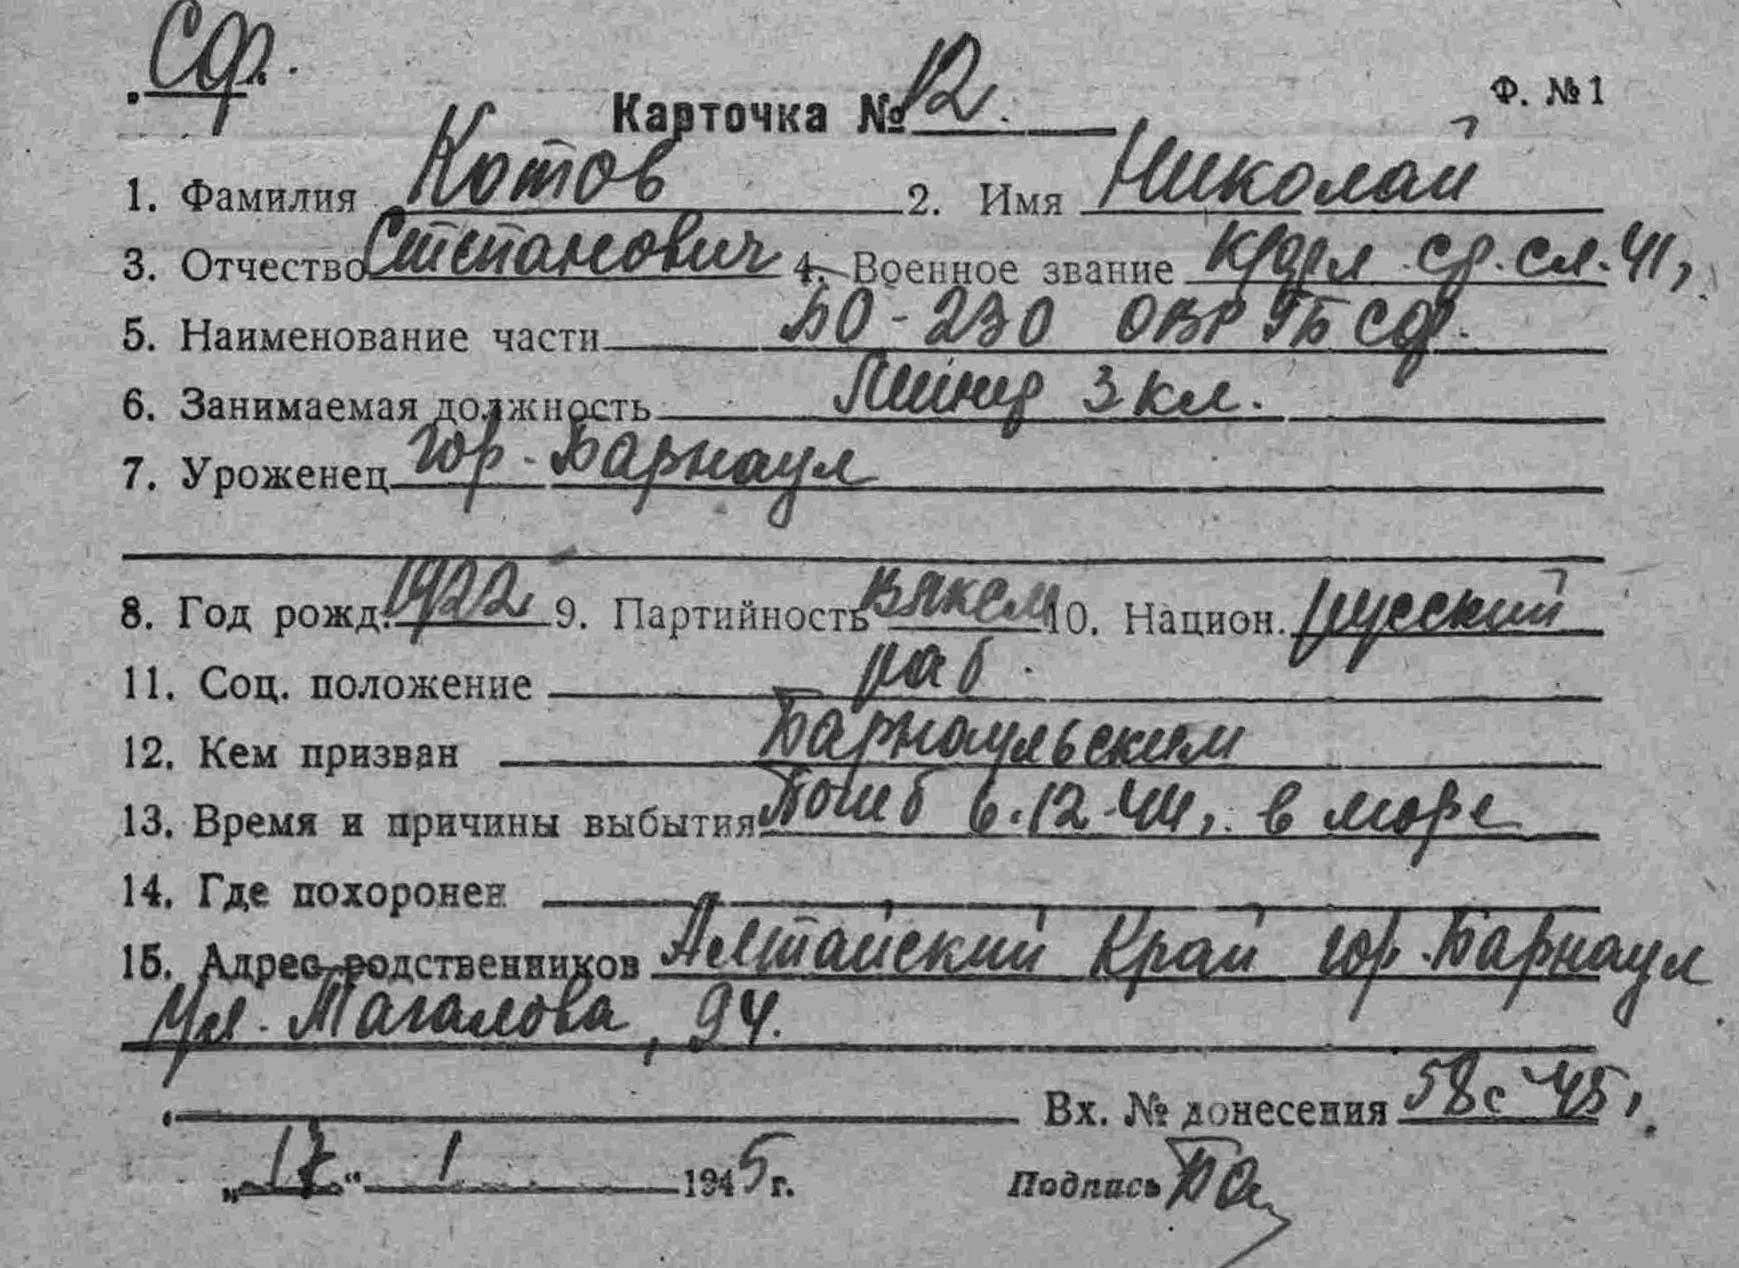 СФ.
Карточка № 12. Ф. №1
1. Фамилия Котов 2. Имя Николай
3. Отчество Степанович 4. Военное звание кр/фл ср. сл. 41,
5. Наименование части БО-230 ОВР ГБ СФ.
6. Занимаемая должность 3 кл.
7. Уроженец гор. Барнаул
8. Год рожд. 1922 9. Партийность ВЛКСМ 10. Национ. русский
11. Соц. положение раб.
12. Кем призван Барнаульским
13. Время и причины выбытия Погиб 6.12.44, в море
14. Где похоронен
15. Адрес родственников Алтайский Край гор. Барнаул
ул. Магалова, 94.
Вх. № донесения 58с 45,
„17“ 1 1945 г. Подпись